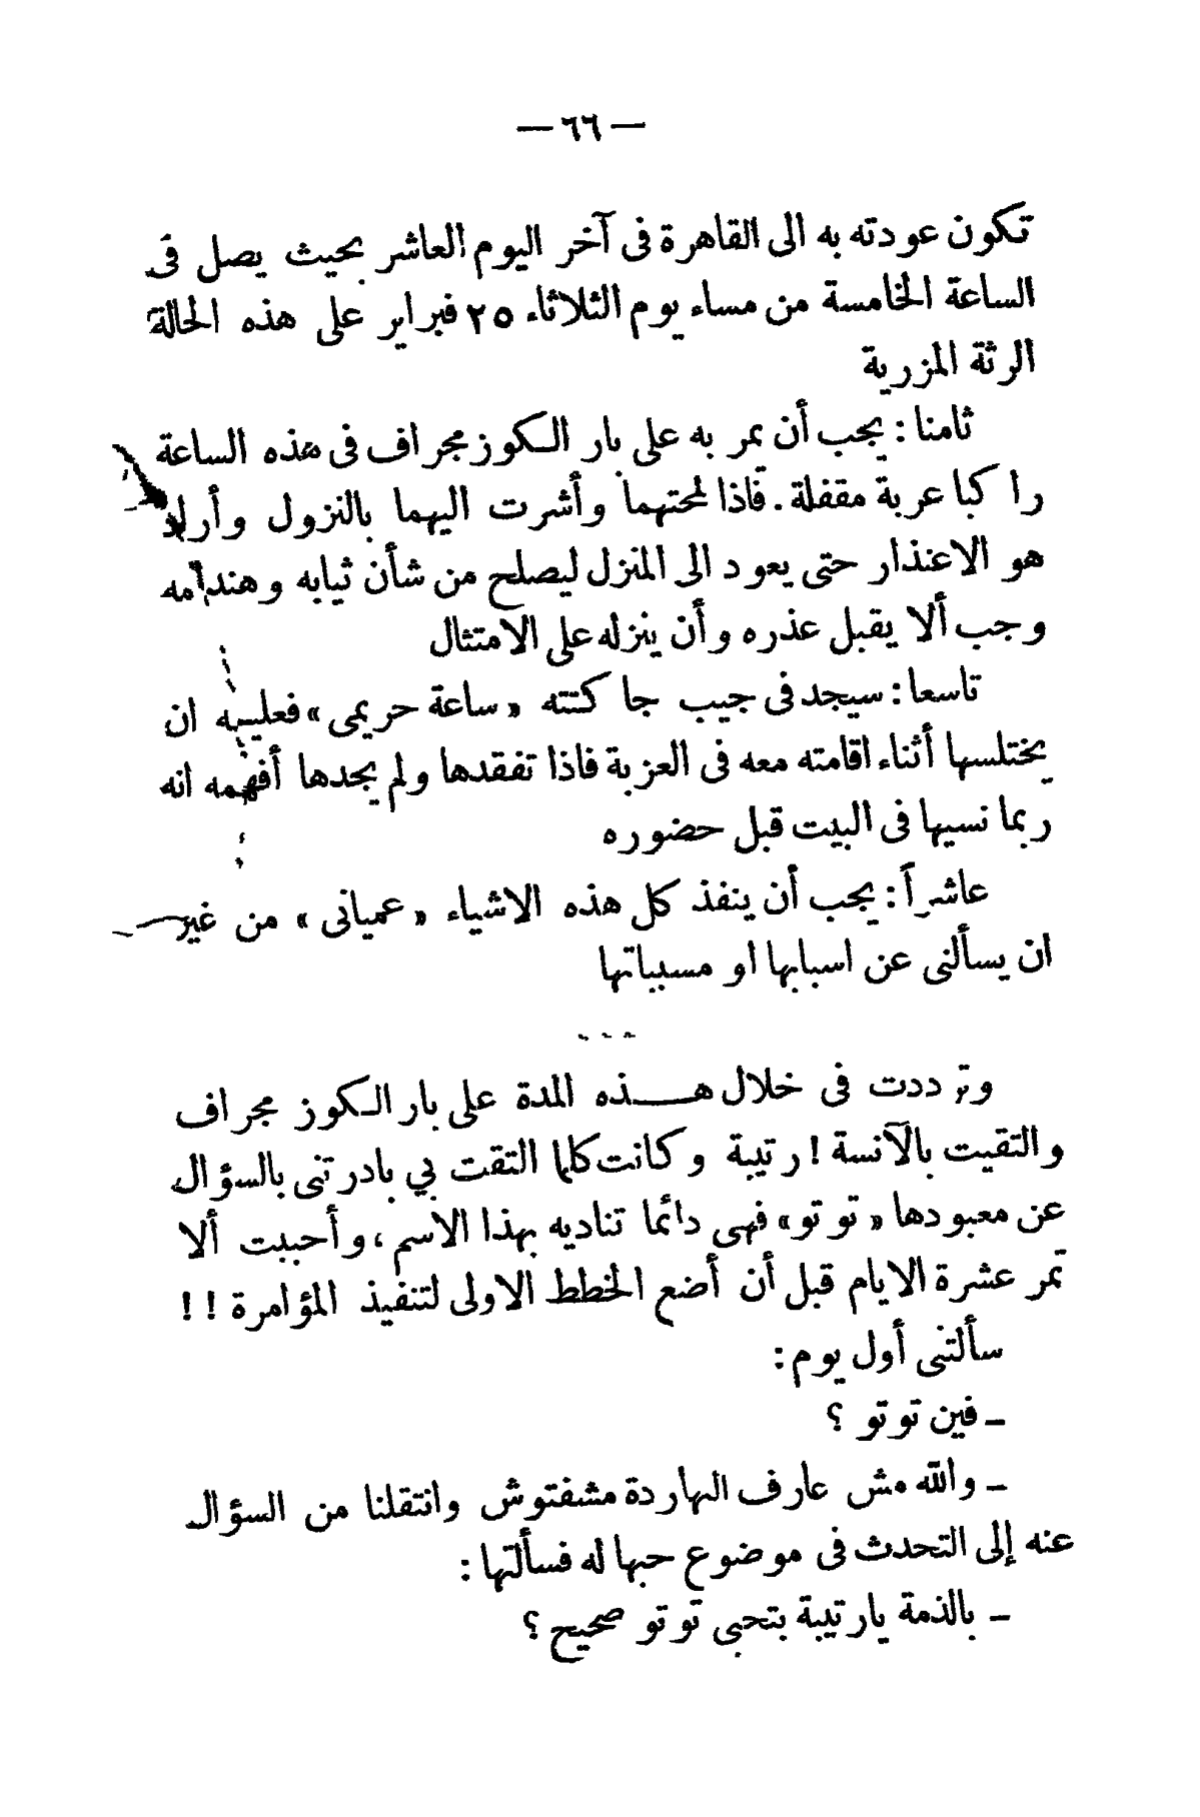 — ٦٦ —
تكون عودته به الى القاهرة فى آخر اليوم العاشر بحيث يصل فى
الساعة الخامسة من مساء يوم الثلاثاء ٢٥ فبراير على هذه الحالة
الرثة المزرية
ثامنا : يجب أن يمر به على بار الـكوزمجراف فى هذه الساعة
راكبا عربة مقفلة . فاذا لمحتهما وأشرت اليهما بالنزول وأراد
هو الاعتذار حتى يعود الى المنزل ليصلح من شأن ثيابه وهندامه
وجب ألا يقبل عذره وأن ينزله على الامتثال
تاسعا : سيجد فى جيب جاكتته « ساعة حريمى » فعليه ان
يختلسها أثناء اقامته معه فى العزبة فاذا تفقدها ولم يجدها أفهمه انه
ربما نسيها فى البيت قبل حضوره
عاشراً : يجب أن ينفذ كل هذه الاشياء « عميانى » من غير
ان يسألنى عن اسبابها او مسبباتها
وترددت فى خلال هـــذه المدة على بار الـكوزمجراف
والتقيت بالآنسة ! رتيبة وكانت كلما التقت بي بادرتنى بالسؤال
عن معبودها « توتو » فهى دائما تناديه بهذا الاسم ، وأحببت ألا
تمر عشرة الايام قبل أن أضع الخطط الاولى لتنفيذ المؤامرة ! !
سألتنى أول يوم :
ـ فين توتو ؟
ـ والله مش عارف النهاردة مشفتوش وانتقلنا من السؤال
عنه إلى التحدث فى موضوع حبها له فسألتها :
ـ بالذمة يارتيبة بتحبى توتو صحيح ؟